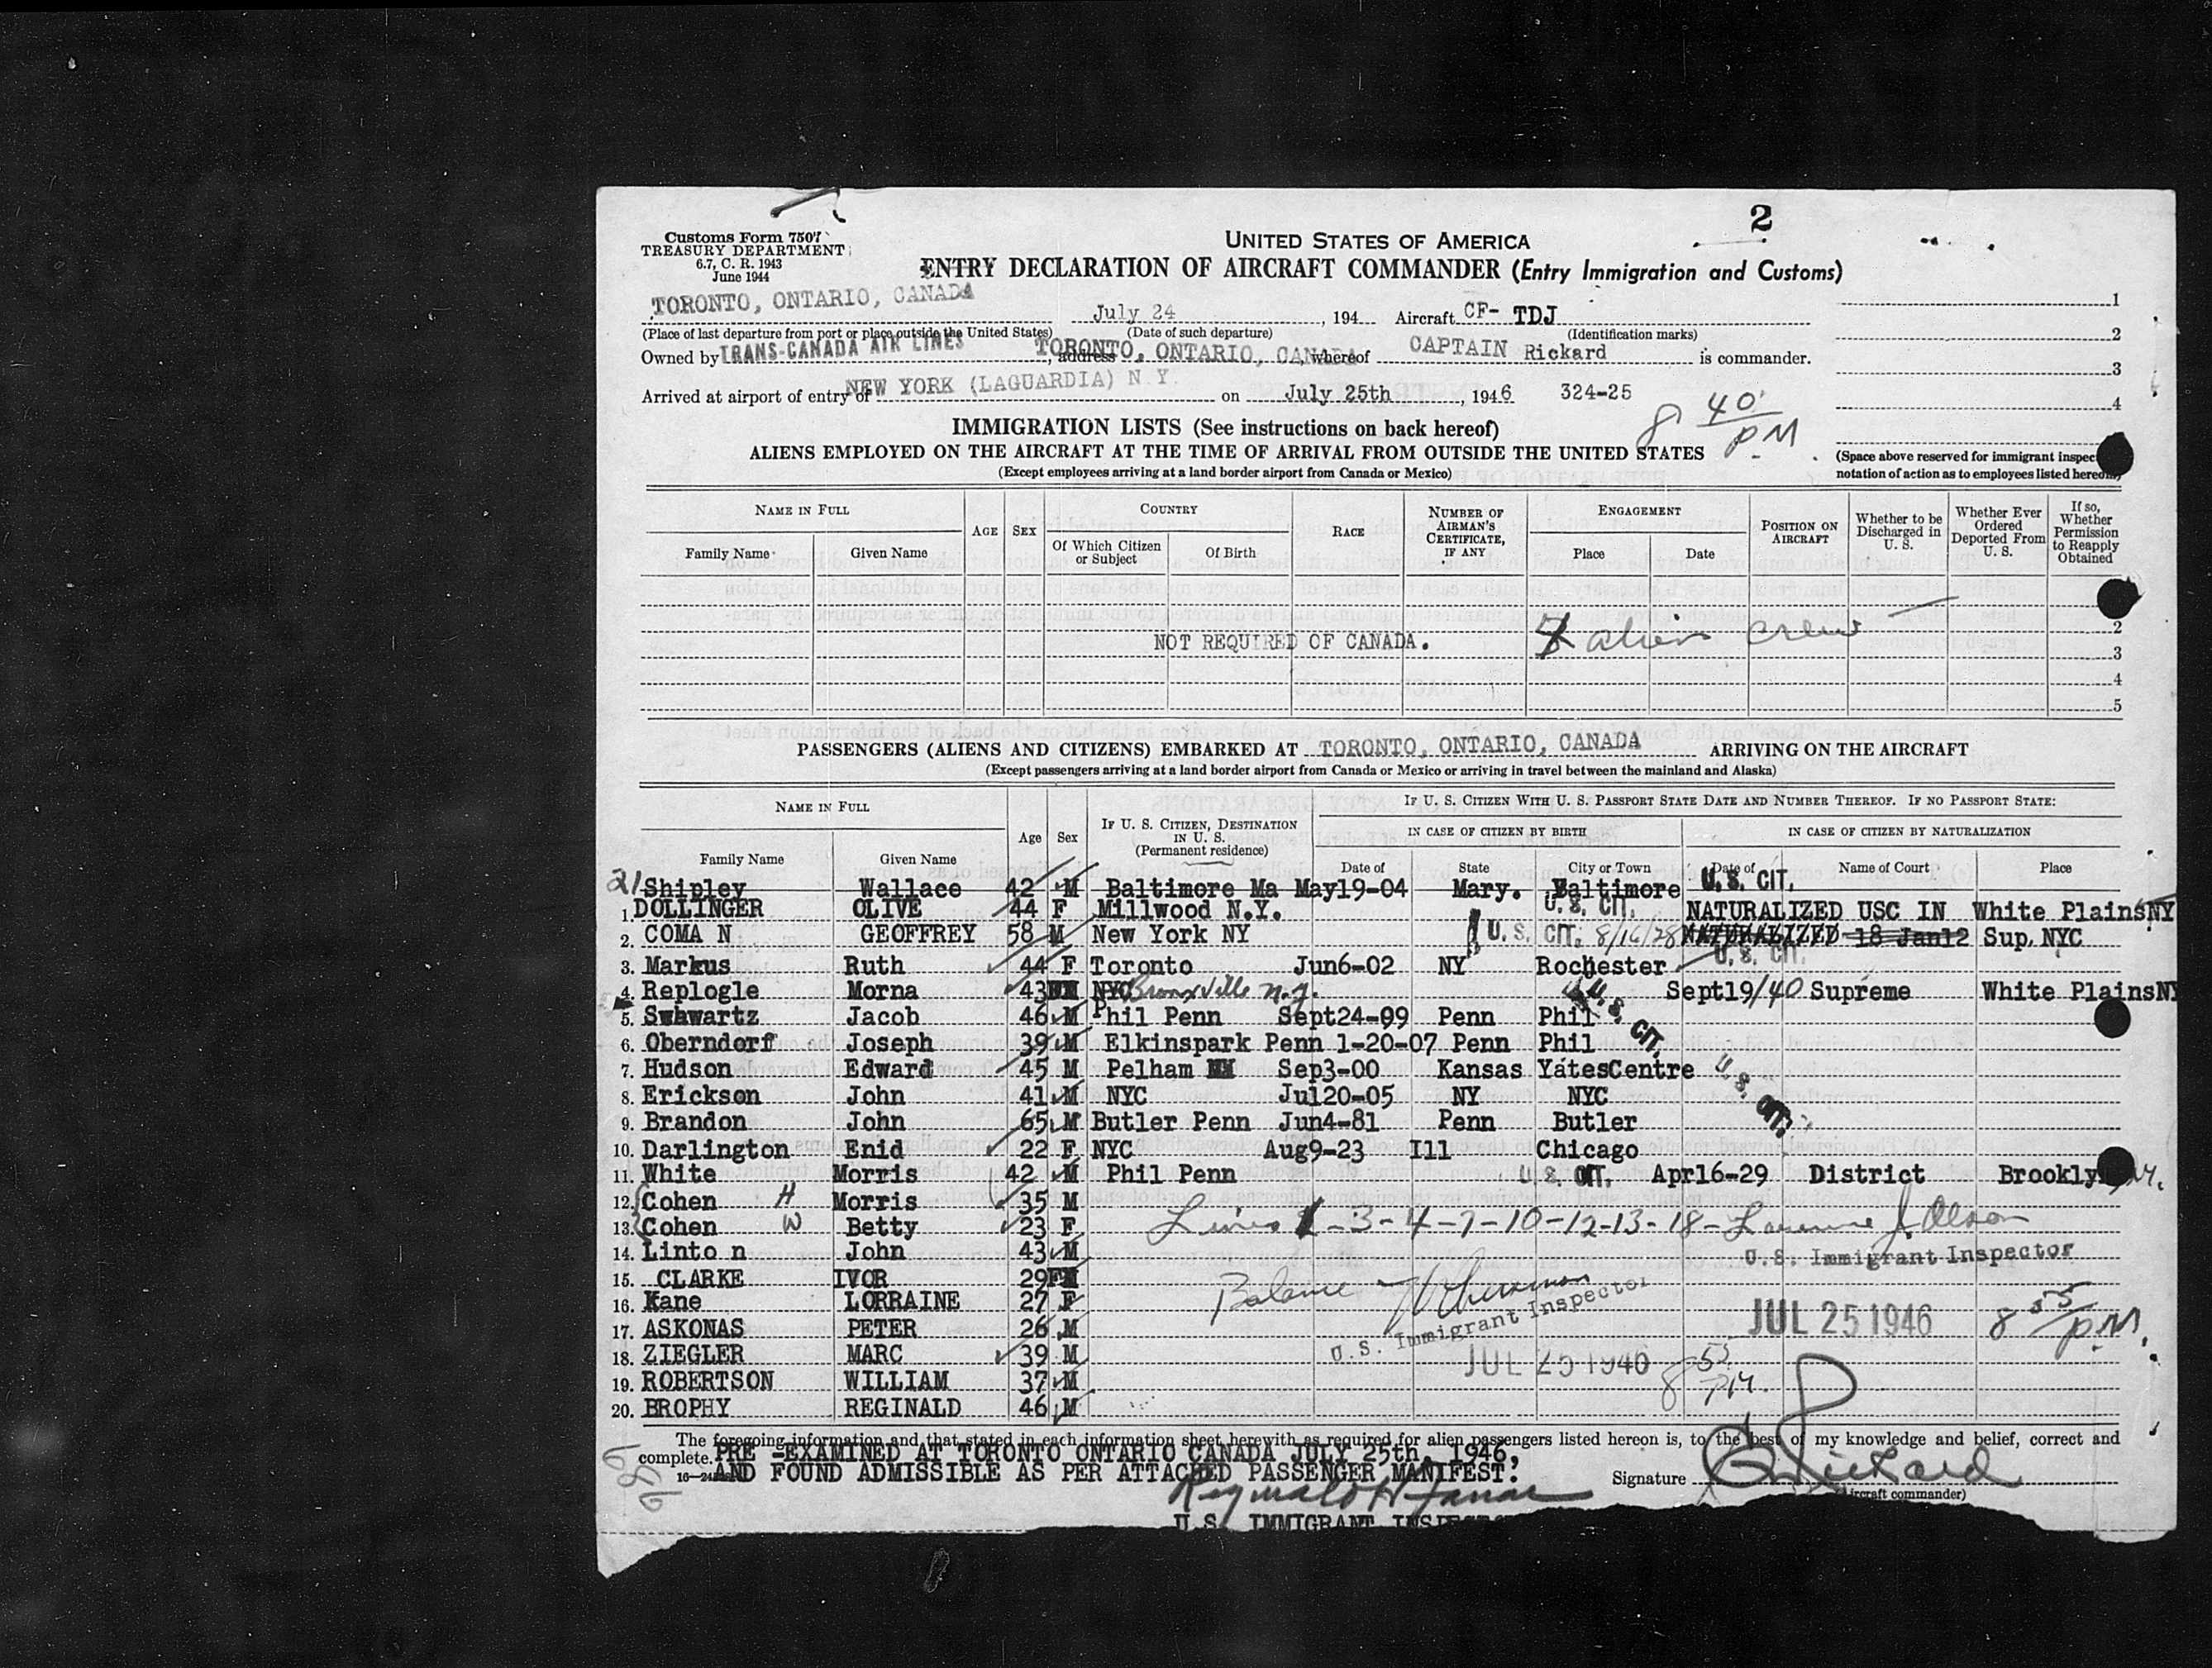 2
Customs Form 7507
TREASURY DEPARTMENT
6.7, C. R. 1943
June 1944
UNITED STATES OF AMERICA
ENTRY DECLARATION OF AIRCRAFT COMMANDER (Entry Immigration and Customs)
TORONTO, ONTARIO, CANADA July 24, 194 Aircraft CF- TDJ 1
(Place of last departure from port or place outside the United States) (Date of such departure) (Identification marks) 2
Owned by TRANS-CANADA AIR LINES, address TORONTO, ONTARIO, CANADA, whereof CAPTAIN Rickard is commander. 3
Arrived at airport of entry of NEW YORK (LAGUARDIA) N.Y. on July 25th, 1946 324-25 4
8 40 PM
IMMIGRATION LISTS (See instructions on back hereof)
ALIENS EMPLOYED ON THE AIRCRAFT AT THE TIME OF ARRIVAL FROM OUTSIDE THE UNITED STATES
(Space above reserved for immigrant inspec
(Except employees arriving at a land border airport from Canada or Mexico) notation of action as to employees listed hereon)
NAME IN FULL AGE SEX COUNTRY RACE NUMBER OF AIRMAN'S CERTIFICATE, IF ANY ENGAGEMENT POSITION ON AIRCRAFT Whether to be Discharged in U. S. Whether Ever Ordered Deported From U. S. If so, Whether Permission to Reapply Obtained
Family Name Given Name Of Which Citizen or Subject Of Birth Place Date
2
NOT REQUIRED OF CANADA. alien crew 3
4
5
PASSENGERS (ALIENS AND CITIZENS) EMBARKED AT TORONTO, ONTARIO, CANADA ARRIVING ON THE AIRCRAFT
(Except passengers arriving at a land border airport from Canada or Mexico or arriving in travel between the mainland and Alaska)
NAME IN FULL Age Sex IF U. S. CITIZEN, DESTINATION IN U. S. (Permanent residence) IF U. S. CITIZEN WITH U. S. PASSPORT STATE DATE AND NUMBER THEREOF. IF NO PASSPORT STATE:
IN CASE OF CITIZEN BY BIRTH IN CASE OF CITIZEN BY NATURALIZATION
Family Name Given Name Date of State City or Town Date of Name of Court Place
21 Shipley Wallace 42 M Baltimore Ma May19-04 Mary. Baltimore U.S. CIT.
1. DOLLINGER OLIVE 44 F Millwood N.Y. U.S. CIT. NATURALIZED USC IN White PlainsNY
2. COMA N GEOFFREY 58 M New York NY U.S. CIT. 8/16/28 NATURALIZED 18 Jan12 Sup. NYC
3. Markus Ruth 44 F Toronto Jun6-02 NY Rochester U.S. CIT.
4. Replogle Morna 43 NYC Bronxville N.Y. Sept19/40 Supreme White PlainsNY
5. Swhwartz Jacob 46 M Phil Penn Sept24-99 Penn Phil U.S. CIT.
6. Oberndorf Joseph 39 M Elkinspark Penn 1-20-07 Penn Phil
7. Hudson Edward 45 M Pelham Sep3-00 Kansas YatesCentre U.S. CIT.
8. Erickson John 41 M NYC Jul20-05 NY NYC
9. Brandon John 65 M Butler Penn Jun4-81 Penn Butler
10. Darlington Enid 22 F NYC Aug9-23 Ill Chicago
11. White Morris 42 M Phil Penn U.S. CIT. Apr16-29 District Brookly N.Y.
12. Cohen H Morris 35 M
13. Cohen W Betty 23 F Lines 1-3-4-7-10-12-13-18- Lawrence J. Olson
14. Linto n John 43 M U.S. Immigrant Inspector
15. CLARKE IVOR 29 M Balance
16. Kane LORRAINE 27 F U.S. Immigrant Inspector
17. ASKONAS PETER 26 M JUL 25 1946 8 55 PM.
18. ZIEGLER MARC 39 M JUL 25 1946 8 55 PM.
19. ROBERTSON WILLIAM 37 M
20. BROPHY REGINALD 46 M
The foregoing information and that stated in each information sheet herewith as required for alien passengers listed hereon is, to the best of my knowledge and belief, correct and
complete. PRE -EXAMINED AT TORONTO ONTARIO CANADA JULY 25th, 1946,
AND FOUND ADMISSIBLE AS PER ATTACHED PASSENGER MANIFEST. Signature Rickard
(Aircraft commander)
U.S. IMMIGRANT INSPE